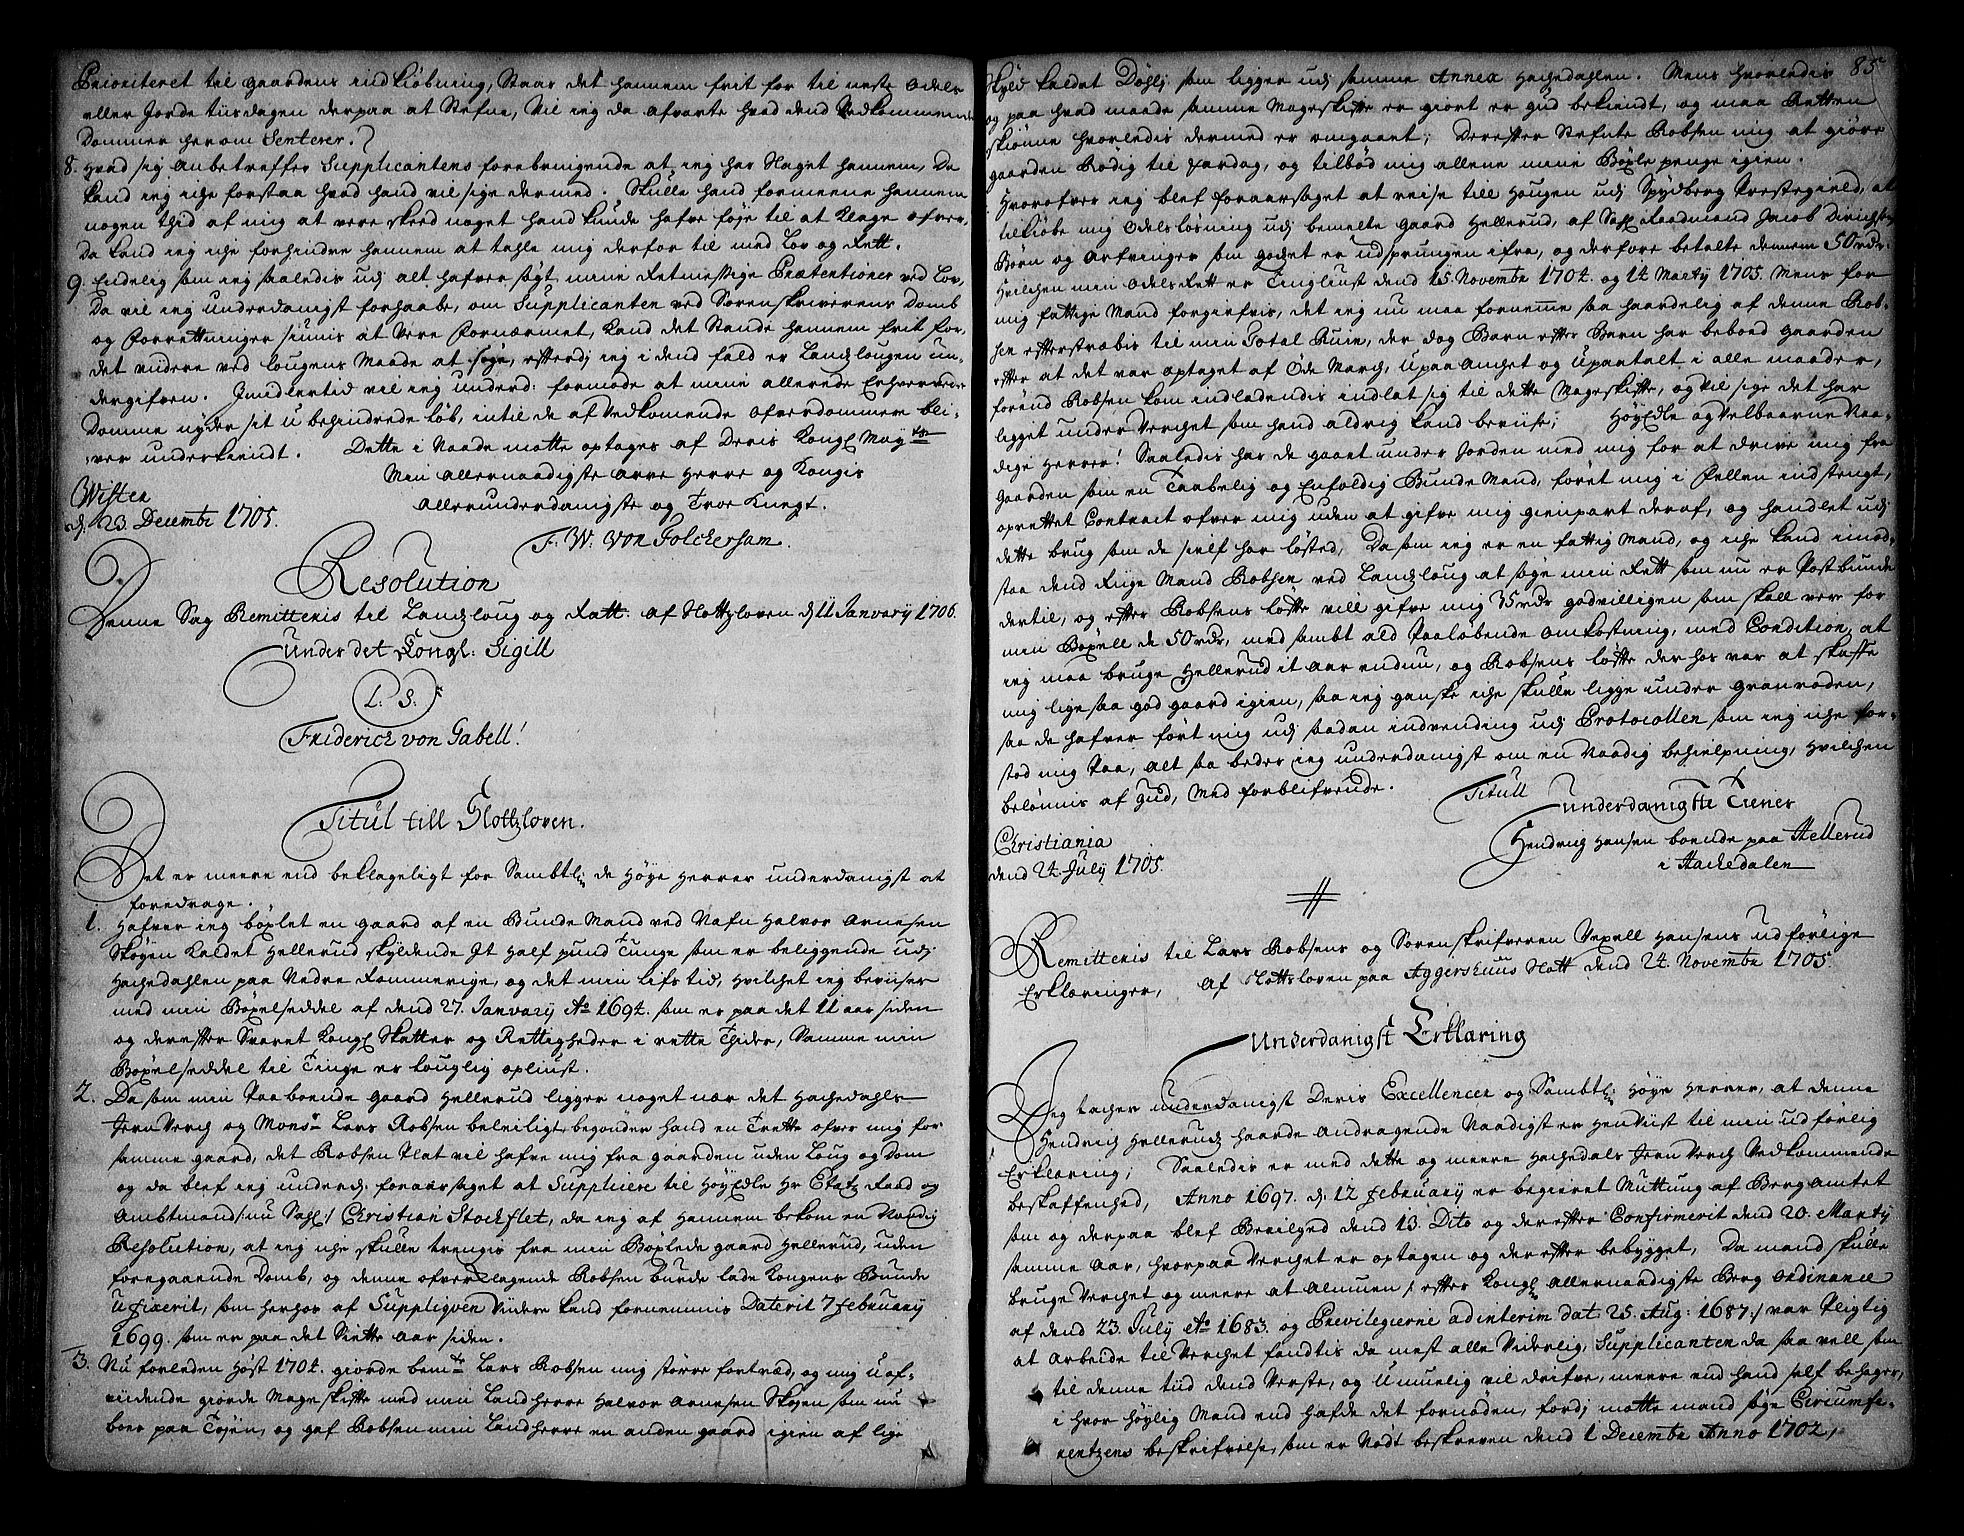 Prioriteret til Gaardens indkiøbning, Staar det hannem frit for til neste Odels
eller Jorde tiisdagen derpaa at Stefne, Vil ieg da afvarte hvad dend Vedkommende
Dommer herom Senterer.
8. Hvad sig Anbetreffer Supplicantens forebringende at ieg har Noget hannem, Da
kand ieg iche forstaa hvad hand vil sige dermed. Skulle hand formeene hannem
nogen thid af mig at vere skeed noget hand kunde hafve føje til at klage ofver,
Da kand ieg iche forhindre hannem at tahle mig derfor til med Lov og Rett.
9. Endelig som ieg saaledis udj alt hafver søgt mine Retmessige Prætentioner ved Lov,
Da vil ieg underdanigst forhaabe, om Supplicanten ved Sorenskriverens Domb
og Forretninger siunis at Vere Fornærmet, kand det Stande hannem frit for,
det viidere ved Lougens Maade at søge, efterdj ieg i dend fald er Landzlougen un-
dergifven. Imidlertid vil ieg underd: formode at mine allerede Erhvervede
Domme nyder sit ubehindrede løb, intil de af Vedkommende Ofverdommere bli-
ver underkiendt. Dette i Naade motte optages af Deris Kongl Mayts
Min Allernaadigste Arve Herre og Kongis
Allerunderdanigste og Troe Knegt.
Wister
d. 23 Decembr 1705.
F. W. Von Folckersam.
Resolution
Denne Sag Remitteris til Landzloug og Rætt. af Slottzloven d. 11 January 1706.
under det Kongl: Sigill
L: S:
Friderich von Gabell!
Titul till Slottzloven.
Det er meere end beklageligt for Sambtlig de Høye Herrer underdanigst at
foredrage.
1. Hafver ieg bøxlet en gaard af en Bunde Mand ved Nafn Halvor Arnesen
Skøyen kaldet Hellerud skyldende Jt Half pund Tunge som er beliggende udj
Hachedahlen paa Nedre Rommerige, og det min lifs tid, hvilchet ieg beviiser
med min Bøxelseddel af dend 27. January Ao 1694. som er paa det 11 aar siden
og derefter Svaret Kongl Skatter og Rettigheder i rette Thider, Samme min
Bøxelseddel til Tinge er Louglig opliust.
2. Da som min Paaboende gaard Hellerud ligger noget nær det Hachedahls
Jern Verch og Monsr Lars Robsen beleiligt, begynder hand en Trette ofver mig for
samme gaard, det Robsen Plat vil hafve mig fra gaarden uden Loug og Dom
og da blef ieg underd: foraarsaget at Supplicere til HøyEdle Hr Etatz Raad og
Ambtmand /: nu Sahl :/ Christian Stockflet, da ieg af Hannem bekom en Naadig
Resolution, at ieg iche skulle trengis fra min Bøxlede gaard Hellerud, uden
foregaaende Domb, og denne ofverklagende Robsen burde lade Kongens Bunde
U Fixerit, som herhos af Suppliqven Viidere kand fornemmis Daterit 7 february
1699. som er paa det Siette Aar siden.
3. Nu forleden Høst 1704. giorde bemte Lars Robsen mig større fortræd, og mig uaf-
viidende giorde Mageskifte med min Landherre Halvor Arnesen Skøyen som nu
boer paa Tøjen, og gaf Robsen min Landherre en anden gaard igien af lige
85
skyld kaldet Døhlj som ligger udj samme Annex Hachedahlen. Mens hvorledis
og paa hvad maade samme Mageskifte er giort er Gud bekiendt, og maa Retten
skiønne hvorledis dermed er omgaaet; Derefter Stefnte Robsen mig at giøre
gaarden Rødig til Fardag, og tilbød mig allene mine Bøxle penge igien.
Hvorofver ieg blef foraarsaget at reise till Hougen udj Spydberg Prestegield, at
tilkiøbe mig Odelsløsning udj bemelte gaard Hellerud, af Sahl Raadmand Jacob Dirichsens
Børn og Arfvinger som godset er udsprungen ifra, og derfore betalte dennem 50 rdr:
Hvilchen min Odels Rett er Tingliust dend 15. Novembr 1704. og 14 Marty 1705. Mens for
mig fattige Mand forgiefvis, det ieg nu maa fornemme saa haardelig af denne Rob-
sen efterstræbis til min Total Ruin, der dog Barn efter Barn har beboed gaarden
efter at det var optaget af Øde March, Upaa Anchet og Upaatalt i alle maader,
førend Robsen kom indladendis indlat sig til dette Mageskifte, og vil sige det har
ligget under Verchet som hand aldrig kand beviise; HøyEdle og Velbaarne Naa-
dige Herrer! Saaledis har de gaaet under Jorden med mig for at drive mig fra
gaarden som en Taabelig og Enfoldig Bunde Mand, føret mig i Fellen indstengt,
oprettet Contract ofver mig uden at gifve mig gienpart deraf, og handlet udj
dette brug som de sielf har løsted, Da som ieg er en fattig Mand, og iche kand imod-
staa dend Riige Mand Robsen ved Landzloug at søge min Rett som nu er Postbunde
dertil, og efter Robsens løfte vill gifve mig 35 rdr godvilligen som skall vere for
min Bøxell de 50 rdr, med sambt ald Paaløbende omkostning, med Condition, at
ieg maa bruge Hellerud it Aar endnu, og Robsens løfte derhos var at skaffe
mig lige saa god gaard igien, saa ieg ganske iche skulle ligge under Granroden,
saa de hafver ført mig udj saadan indvending udj Protocollen som ieg iche for-
stod mig Paa, Alt saa beder ieg underdanigst om en Naadig behielpning, Hvilchen
belønnis af Gud, Med forblifvende.
Titull
underdanigste Tiener
Hendrig Hansen boende paa Hellerud
i Hachedalen
Christiania
dend 24. July 1705.
Remitteris til Lars Robsens og Sorenskrifveren Vexell Hansens udførlige
Erklæringer, Af Slottsloven paa Aggershuus Slott dend 24. Novembr 1705.
Underdanigst Erklaring
Jeg tacher underdanigst Deris Excellencer og Sambtlig Høye Herrer, at denne
Hendrich Hellerudz haarde Andragende Naadigst er Henviist til min udførlig
Erklæring; Saaledis er med dette og meere Hachedals Jern Verch Vedkommende
beskaffenhed, Anno 1697. d. 12 february er begieret Muttung af Berg Amtet
som og derpaa blef Bevilged dend 13. Dito og derefter Confirmerit dend 20. Marty
samme Aar, hvorpaa Verchet er optagen og derefter bebygget, Da mand skulle
bruge Verchet og meere at Almuen /: efter Kongl Allernaadigste Berg Ordinance
af dend 23. July Ao 1683. og Previlegierne ad interim dat: 25. Aug: 1687 :/ var Pligtig
at Arbeide til Verchet fandtis da mest alle Viderlig, Supplicanten da saa vell som
til denne tiid dend Verste, og Umuelig vil drifve, meere end hand self behager,
i hvor høylig Mand end hafde det fornøden, fordj motte mand søge Circumfe-
rentzens beskrifvelse, som er Nødt beskreven dend 1 Decembr Anno 1702,